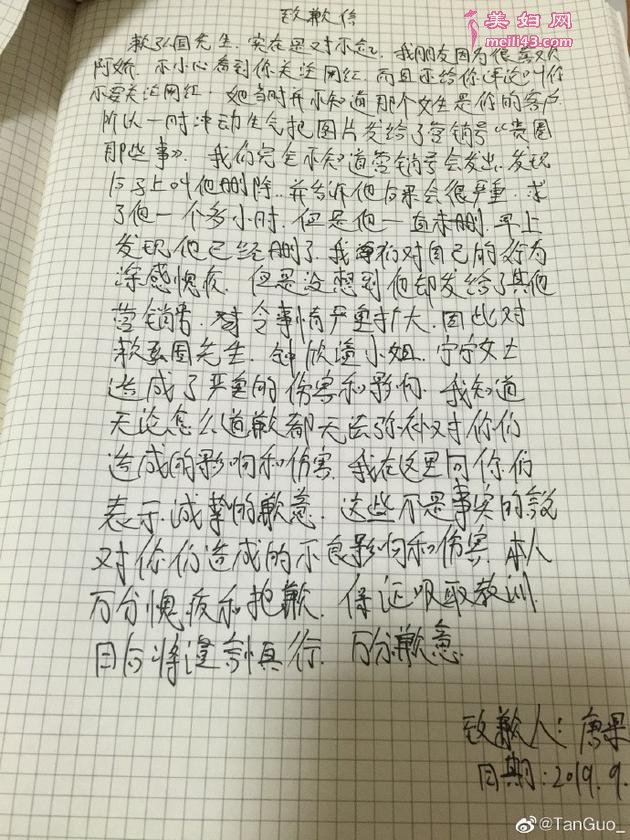 致歉信
美妇网
meili43.com
赖弘国先生，实在是对不起，我朋友因为很喜欢
阿娇，不小心看到你关注网红，而且还给你评论叫你
不要关注网红，她当时并不知道那个女生是你的客户，
所以一时冲动生气把图片发给了营销号《贵圈
那些事》。我们完全不知道营销号会发出，发现
后马上叫他删除，并告诉他后果会很严重，求
了他一个多小时，但是他一直未删，早上
发现他已经删了，我们对自己的行为
深感愧疚，但是没想到他却发给了其他
营销号，令事情严重扩大，因此对
赖弘国先生，钟欣潼小姐，宁宁女士
造成了严重的伤害和影响，我知道
无论怎么道歉都无法弥补对你们
造成的影响和伤害，我在这里向你们
表示诚挚的歉意，这些不是事实的言论
对你们造成的不良影响和伤害，本人
万分愧疚和抱歉，保证吸取教训，
日后将谨言慎行，万分歉意。
致歉人：唐果
日期：2019.9.
@TanGuo_